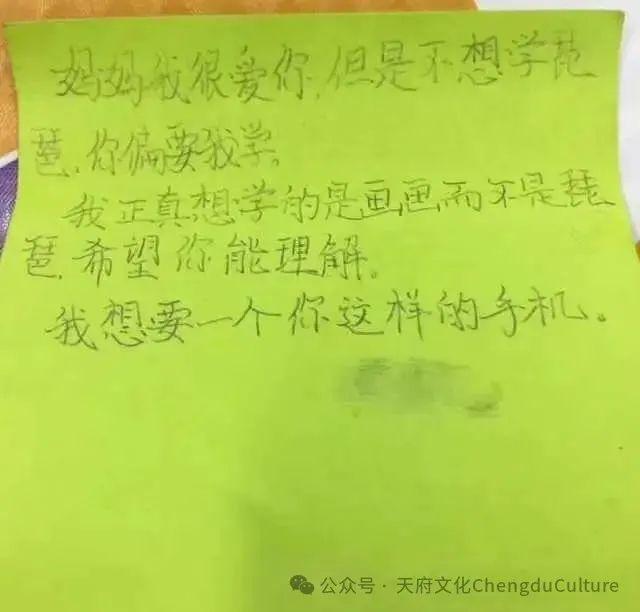 妈妈我很爱你,但是不想学琵
琶,你偏要我学。
我正真想学的是画画而不是琵
琶,希望你能理解。
我想要一个你这样的手机。
公众号·天府文化ChengduCulture